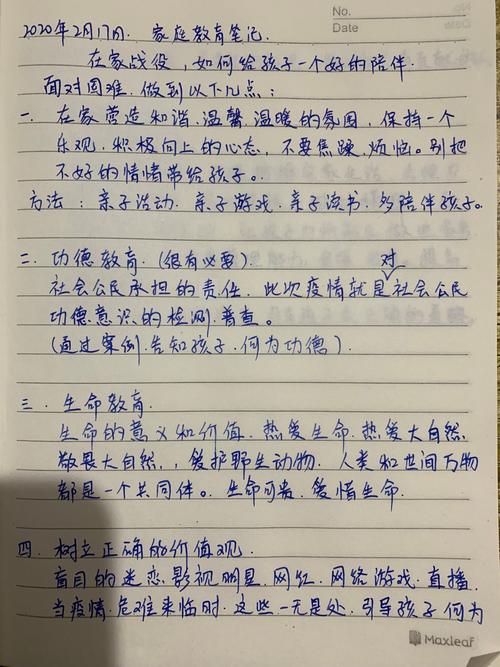 No.
Date
2020年2月17日. 家庭教育笔记.
在家战役,如何给孩子一个好的陪伴.
面对困难.做到以下几点:
一. 在家营造和谐.温馨.温暖的氛围,保持一个
乐观.积极向上的心态,不要焦躁.烦恼。别把
不好的情绪带给孩子。.
方法:亲子活动.亲子游戏.亲子读书.多陪伴孩子。
二. 功德教育.(很有必要). 对
社会公民承担的责任.此次疫情就是社会公民
功德意识的检测.普查。
(通过案例.告知孩子.何为功德).
三. 生命教育.
生命的意义和价值.热爱生命.热爱大自然.
敬畏大自然,,爱护野生动物.人类和世间万物
都是一个共同体。生命可贵.爱惜生命.
四. 树立正确的价值观.
盲目的迷恋.影视明星.网红.网络游戏.直播.
当疫情.危难来临时.这些一无是处.引导孩子何为
Maxleaf